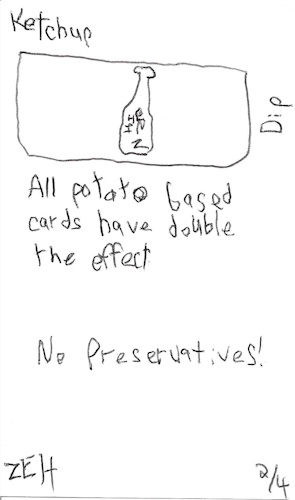 Ketchup
Dip
All potato based
cards have double
the effect
No Preservatives!
ZEH
2/4